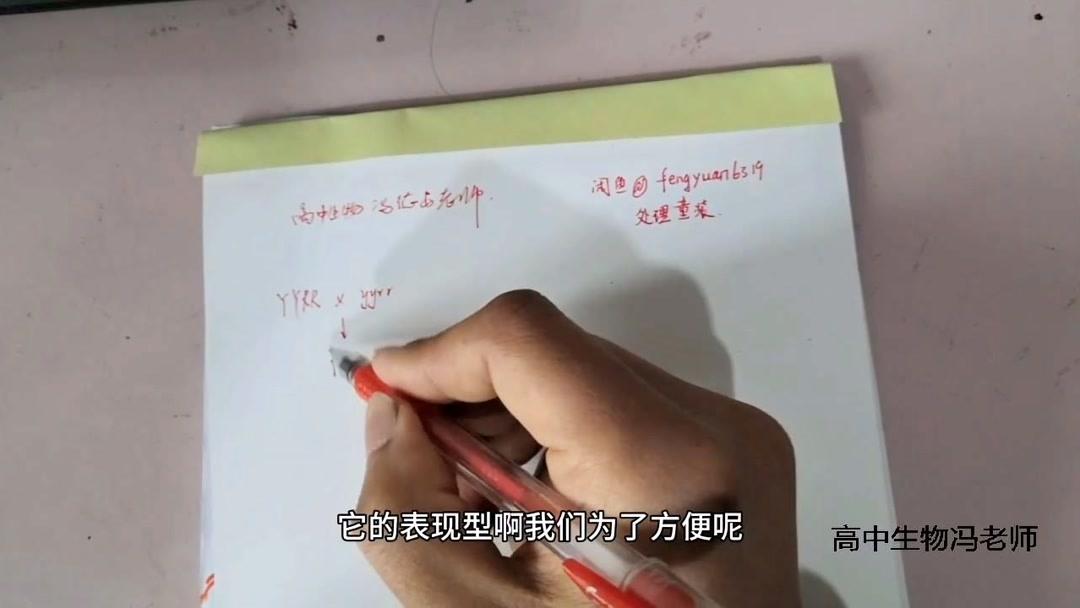 高中生物冯德占老师.
闲鱼@ fengyuan6319
处理童装.
YYRR × yyrr
↓
它的表现型啊我们为了方便呢
高中生物冯老师